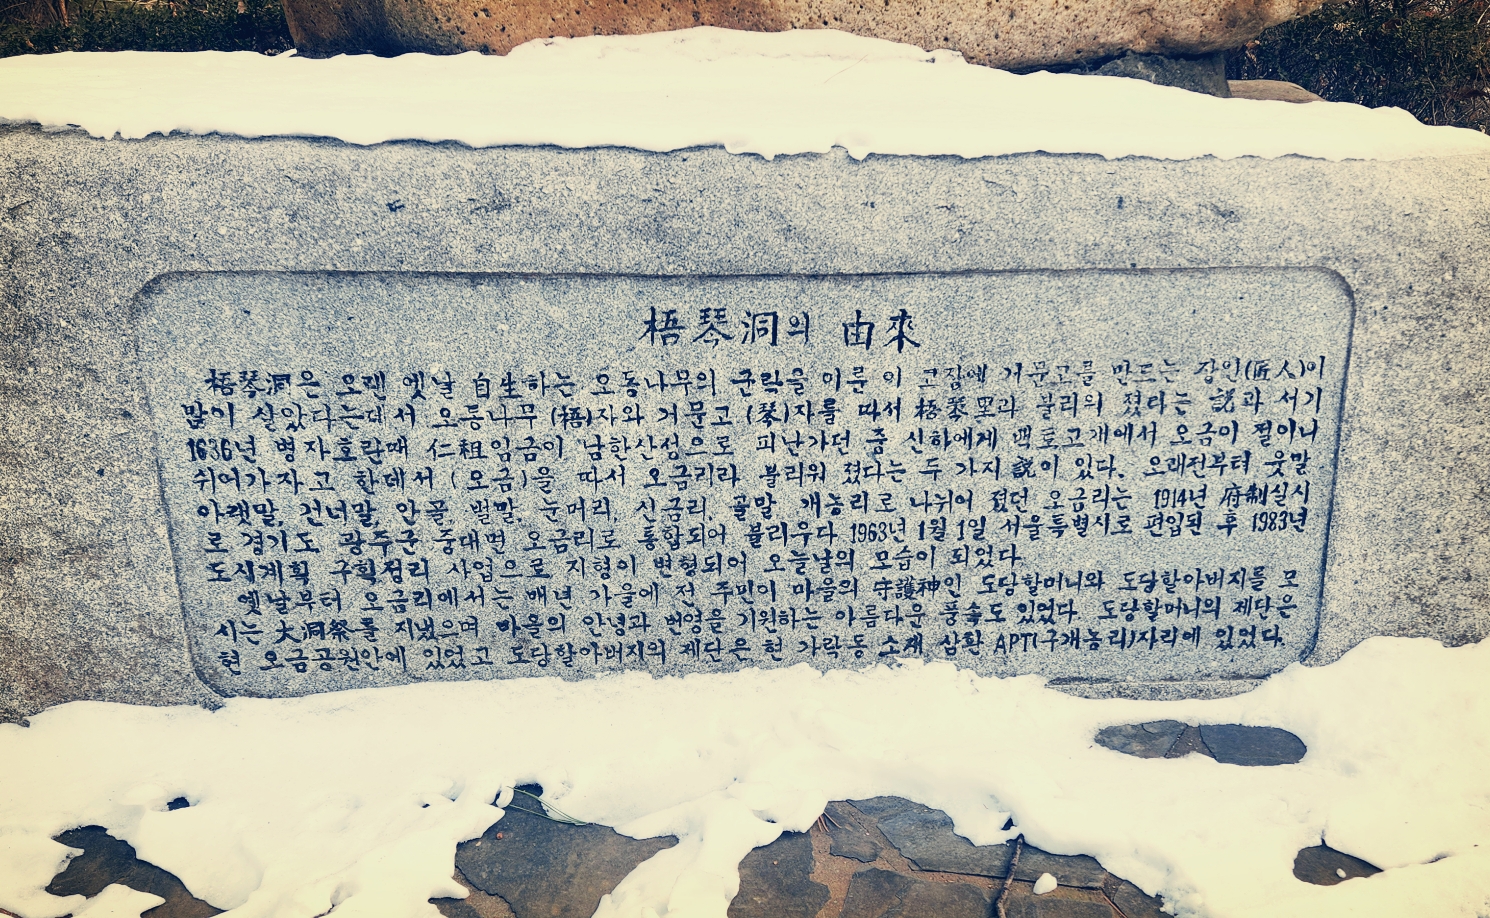 梧琴洞의 由來
梧琴洞은 오랜 옛날 自生하는 오동나무의 군락을 이룬 이 고장에 거문고를 만드는 장인(匠人)이
많이 살았다는데서 오동나무 (梧)자와 거문고 (琴)자를 따서 梧琴里라 불리의 졌다는 說과 서기
1636년 병자호란때 仁祖임금이 남한산성으로 피난가던 중 신하에게 백토고개에서 오금이 절이니
쉬어가자고 한데서 (오금)을 따서 오금리라 불리워 졌다는 두 가지 說이 있다. 오래전부터 웃말
아랫말, 건너말, 안골, 벌말, 눈머리, 신금리, 골말 개농리로 나뉘어 졌던 오금리는 1914년 府制실시
로 경기도 광주군 중대면 오금리로 통합되어 불리우다 1963년 1월 1일 서울특별시로 편입된 후 1983년
도시계획 구획정리 사업으로 지형이 변형되어 오늘날의 모습이 되었다
옛날부터 오금리에서는 매년 가을에 전 주민이 마을의 守護神인 도당할머니와 도당할아버지를 모
시는 大洞祭를 지냈으며 마을의 안녕과 번영을 기원하는 아름다운 풍속도 있었다 도당할머니의 제단은
현 오금공원안에 있었고 도당할아버지의 제단은 현 가락동 소재 삼환 APT(구개농리)자리에 있었다.